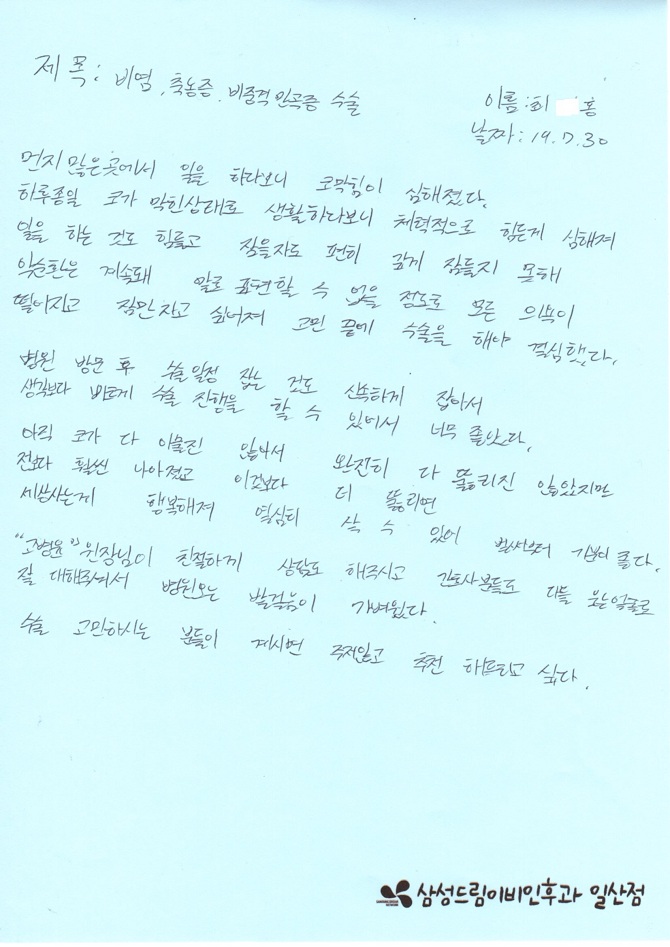 제 목: 비염, 축농증, 비중격 만곡증 수술
이름: 최 홍
날짜: 19.7.30
먼지 많은곳에서 일을 하다보니 코막힘이 심해졌다.
하루종일 코가 막힌상태로 생활하다보니 체력적으로 힘든게 심해져
일을 하는 것도 힘들고 작을자도 편히 깊게 잠들지 못해
악순환은 계속돼 말로 표현할 수 없을 정도로 모든 의욕이
떨어지고 잠만 자고 싶어져 고민 끝에 수술을 해야 결심했다.
병원 방문 후 수술일정 잡는 것도 신속하게 잡아서
생각보다 빠르게 수술 진행을 할 수 있어서 너무 좋았다.
아직 코가 다 아물진 않아서 완전히 다 뚫리진 않았지만
전보다 훨씬 나아졌고 이것보다 더 뚫리면
세상사는게 행복해져 열심히 살 수 있어 벌써부터 기분이 좋다.
"고병윤" 원장님이 친절하게 상담도 해주시고 간호사분들도 다들 웃는얼굴로
잘 대해주셔서 병원오는 발걸음이 가벼웠다.
수술 고민하시는 분들이 계시면 주저않고 추천 해드리고 싶다.
삼성드림이비인후과 일산점